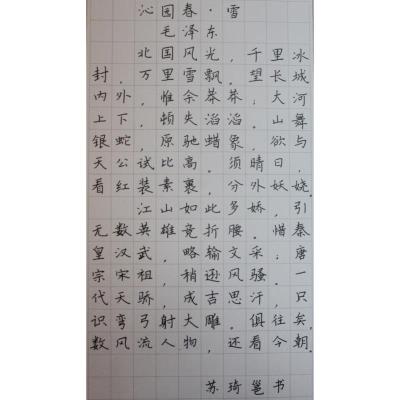 沁园春·雪
毛泽东
北国风光,千里冰
封,万里雪飘。望长城
内外,惟余莽莽;大河
上下,顿失滔滔。山舞
银蛇,原驰蜡象,欲与
天公试比高。须晴日,
看红装素裹,分外妖娆。
江山如此多娇,引
无数英雄竞折腰。惜秦
皇汉武,略输文采;唐
宗宋祖,稍逊风骚。一
代天骄,成吉思汗,只
识弯弓射大雕。俱往矣,
数风流人物,还看今朝。
苏琦邕书